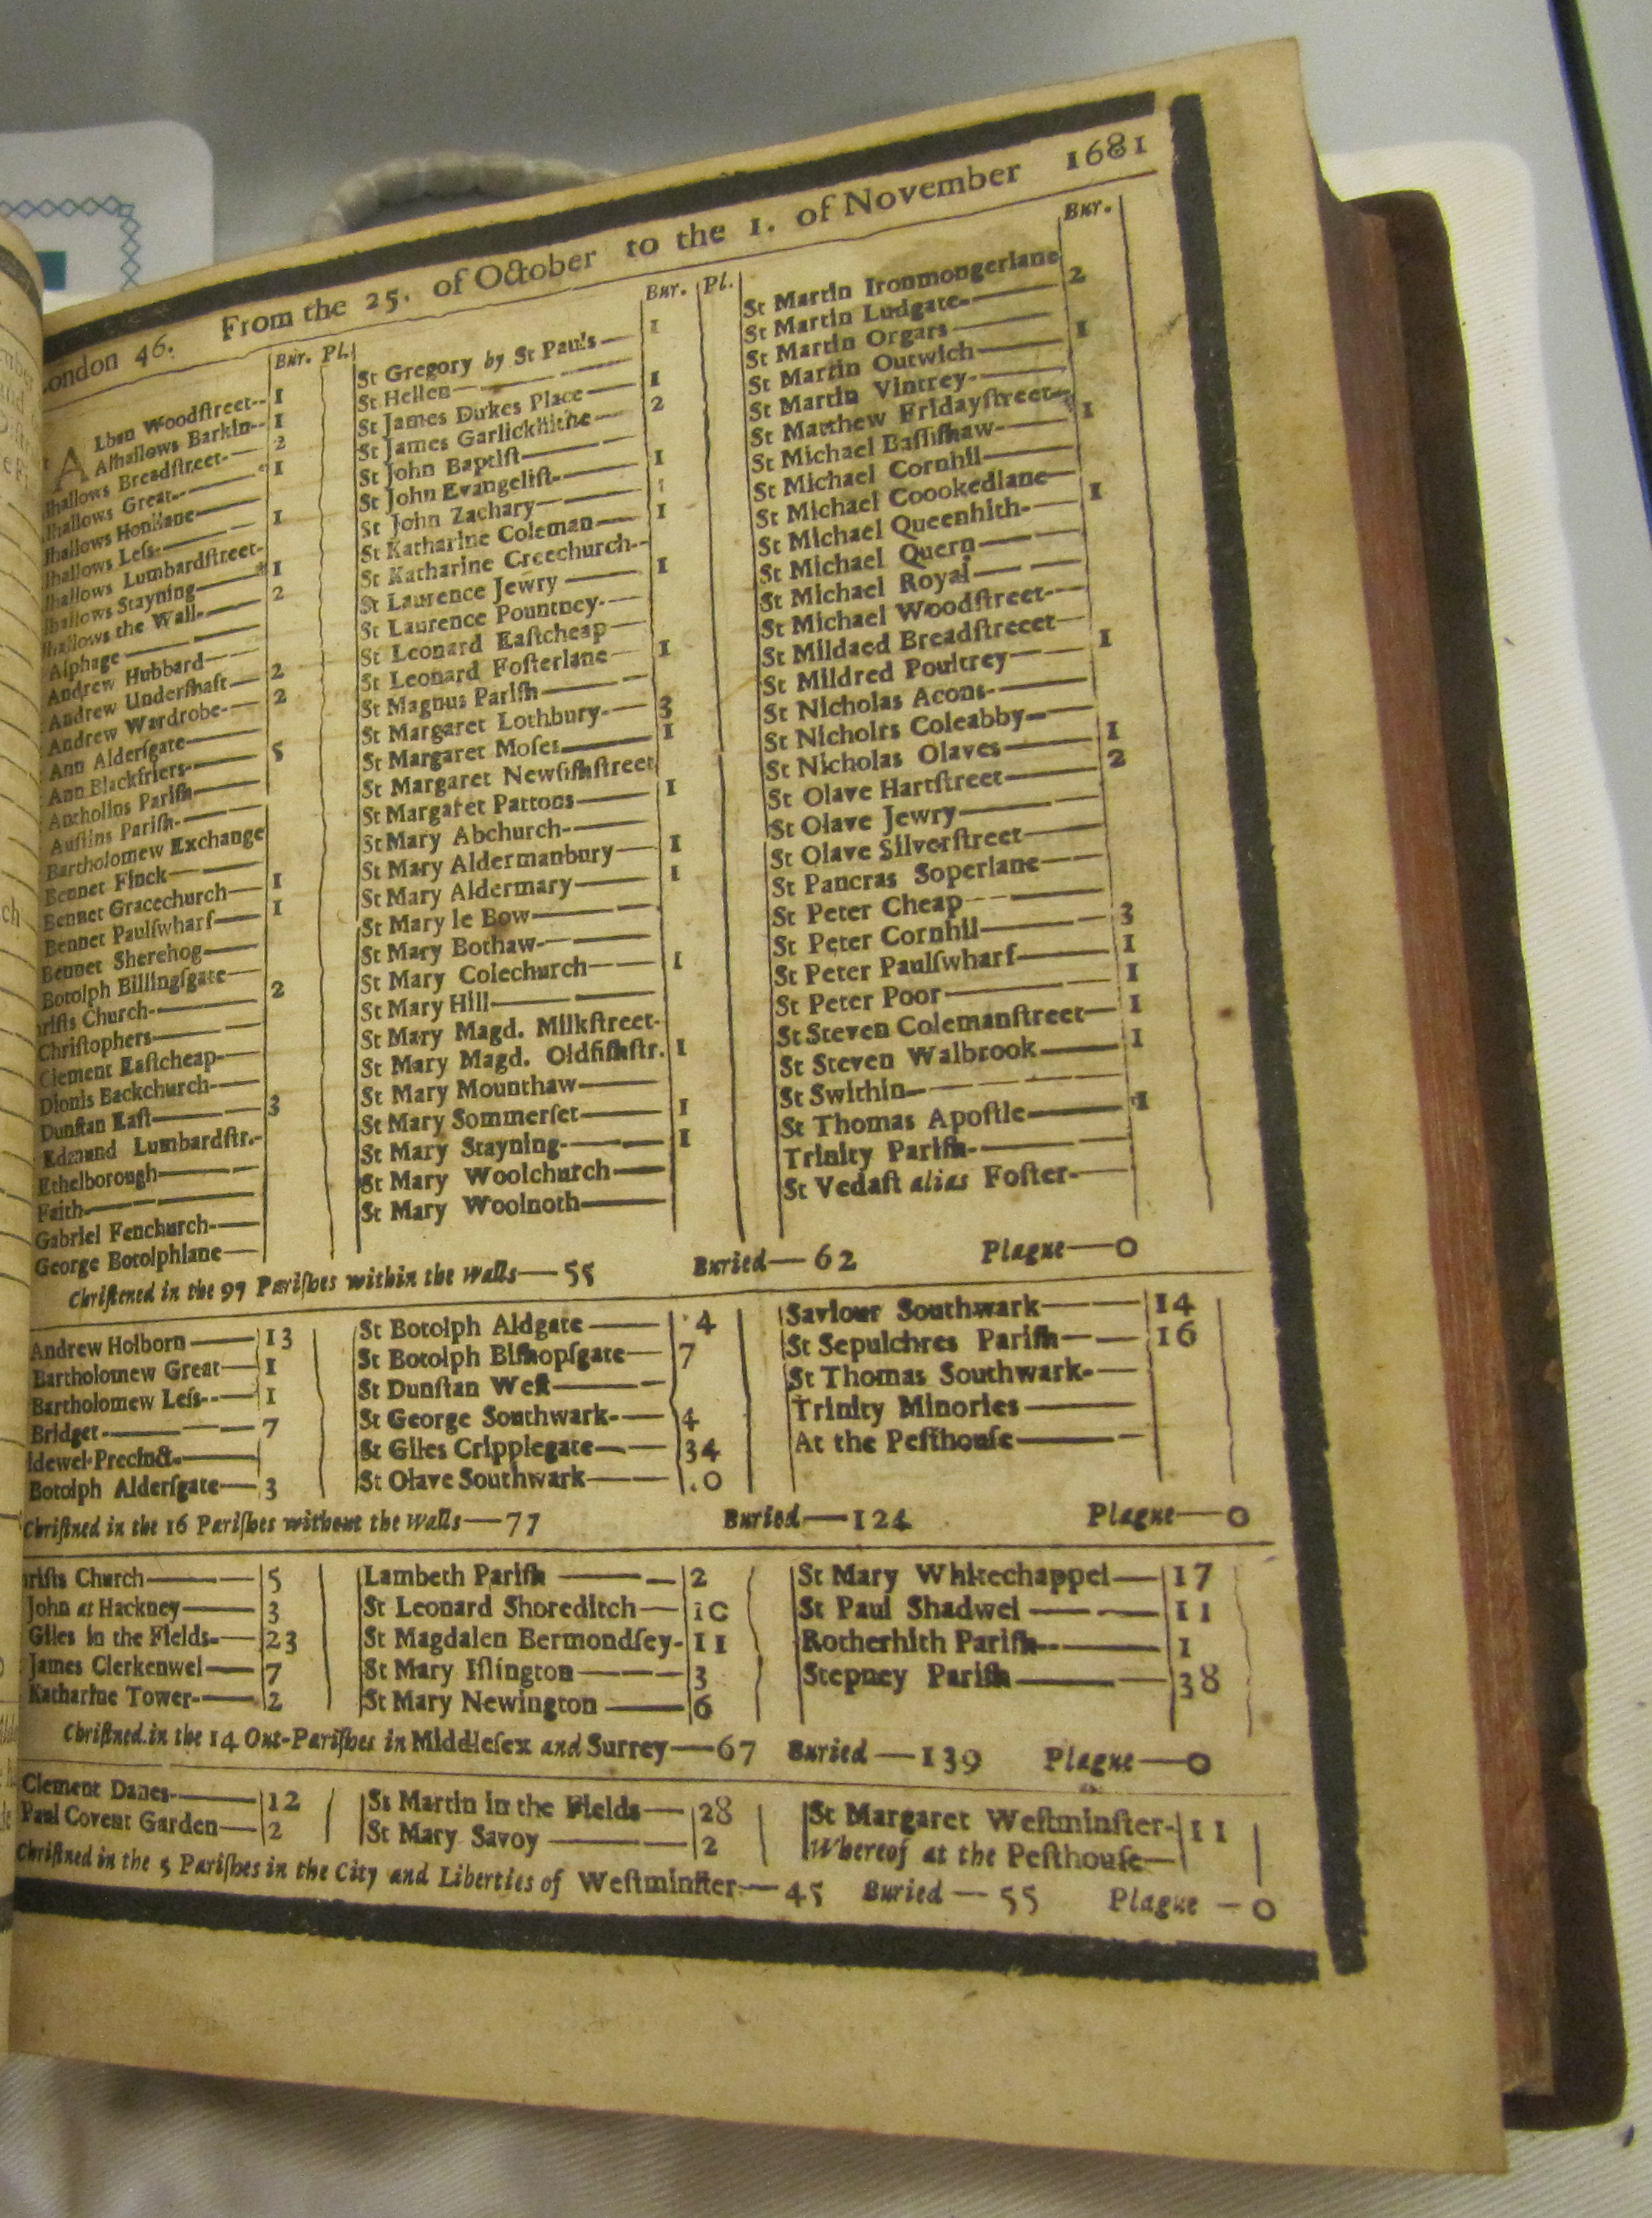 London 46. From the 25. of October to the 1. of November 1681
Bur. Pl.
Alban Woodſtreet-- 1
Alhallows Barkin-- 1
lhallows Breadſtreet-— 2
lhallows Great-—— 1
lhallows Honilane——
lhallows Leſs-—— 1
lhallows Lumbardſtreet-
lhallows Stayning—— 1
lhallows the Wall-—— 2
Alphage ————
Andrew Hubbard——
Andrew Underſhaft— 2
Andrew Wardrobe-— 2
Ann Alderſgate——
Ann Blackfriers-—— 5
Antholins Pariſh——
Auſtins Pariſh-——
Bartholomew Exchange
Bennet Finck———
Bennet Gracechurch— 1
Bennet Paulſwharf— 1
Bennet Sherehog——
Botolph Billingſgate—
riſts Church-—— 2
Chriſtophers———
Clement Eaſtcheap-—
Dionis Backchurch-—
Dunſtan Eaſt——— 3
Edmund Lumbardſtr.-
Ethelborough———
Faith—————
Gabriel Fenchurch-—
George Botolphlane—
Bur. Pl.
St Gregory by St Pauls— 1
St Hellen————
St James Dukes Place— 1
St James Garlickhithe— 2
St John Baptiſt———
St John Evangeliſt-— 1
St John Zachary——— 1
St Katharine Coleman— 1
St Katharine Creechurch--
St Laurence Jewry —— 1
St Laurence Pountney-—
St Leonard Eaſtcheap—
St Leonard Foſterlane— 1
St Magnus Pariſh——
St Margaret Lothbury-— 3
St Margaret Moſes—— 1
St Margaret Newfiſhſtreet
St Margaret Pattons—— 1
St Mary Abchurch-——
St Mary Aldermanbury— 1
St Mary Aldermary—— 1
St Mary le Bow———
St Mary Bothaw-——
St Mary Colechurch—— 1
St Mary Hill————
St Mary Magd. Milkſtreet-
St Mary Magd. Oldfiſhſtr. 1
St Mary Mounthaw——
St Mary Sommerſet—— 1
St Mary Stayning-—— 1
St Mary Woolchurch—
St Mary Woolnoth——
Bur.
St Martin Ironmongerlane
St Martin Ludgate-—— 2
St Martin Orgars———
St Martin Outwich—— 1
St Martin Vintrey-——
St Matthew Fridayſtreet-
St Michael Baſſiſhaw-— 1
St Michael Cornhil——
St Michael Coookedlane—
St Michael Queenhith-— 1
St Michael Quern———
St Michael Royal———
St Michael Woodſtreet-—
St Mildaed Breadſtreeet—
St Mildred Poultrey—— 1
St Nicholas Acons-——
St Nicholrs Coleabby-—
St Nicholas Olaves—— 1
St Olave Hartſtreet—— 2
St Olave Jewry———
St Olave Silverſtreet——
St Pancras Soperlane——
St Peter Cheap-———
St Peter Cornhil——— 3
St Peter Paulſwharf—— 1
St Peter Poor———— 1
St Steven Colemanſtreet— 1
St Steven Walbrook—— 1
St Swithin-————
St Thomas Apoſtle—— 1
Trinity Pariſh-———
St Vedaſt alias Foſter-—
Chriſtened in the 97 Pariſhes within the Walls—55 Buried—62 Plague—0
Andrew Holborn ——13
Bartholomew Great— 1
Bartholomew Leſs-- 1
Bridget-——— 7
idewel-Precinct-——
Botolph Alderſgate— 3
St Botolph Aldgate —— 4
St Botolph Biſhopſgate— 7
St Dunſtan Weſt———
St George Southwark-— 4
St Giles Cripplegate-— 34
St Olave Southwark—— .0
Saviour Southwark——14
St Sepulchres Pariſh——16
St Thomas Southwark-—
Trinity Minories ——
At the Peſthouſe———
Chriſtned in the 16 Pariſhes without the Walls—77 Buried—124 Plague—0
riſts Church——— 5
John at Hackney—— 3
Giles in the Fields-— 23
James Clerkenwel— 7
Katharine Tower-— 2
Lambeth Pariſh ——— 2
St Leonard Shoreditch— 10
St Magdalen Bermondſey- 11
St Mary Iſlington——— 3
St Mary Newington —— 6
St Mary Whitechappel—17
St Paul Shadwel ——— 11
Rotherhith Pariſh-—— 1
Stepney Pariſh——— 38
Chriſtned in the 14 Out-Pariſhes in Middleſex and Surrey—67 Buried—139 Plague—0
Clement Danes-—— 12
Paul Covent Garden— 2
St Martin in the Fields— 28
St Mary Savoy ——— 2
St Margaret Weſtminſter- 11
Whereof at the Peſthouſe—
Chriſtned in the 5 Pariſhes in the City and Liberties of Weſtminſter-—45 Buried—55 Plague—0